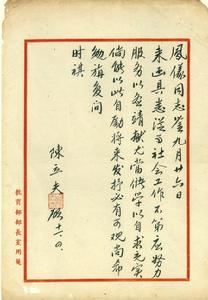 凤仪同志鉴九月廿六日
来函具悉从事社会工作不第应努力
服务以圖靖献尤当借学以自求充实
倘能以此自励将来发抒必有可观尚希
勉旃复问
时祺
陳立夫
啟十一、四、
教育部部長室用箋